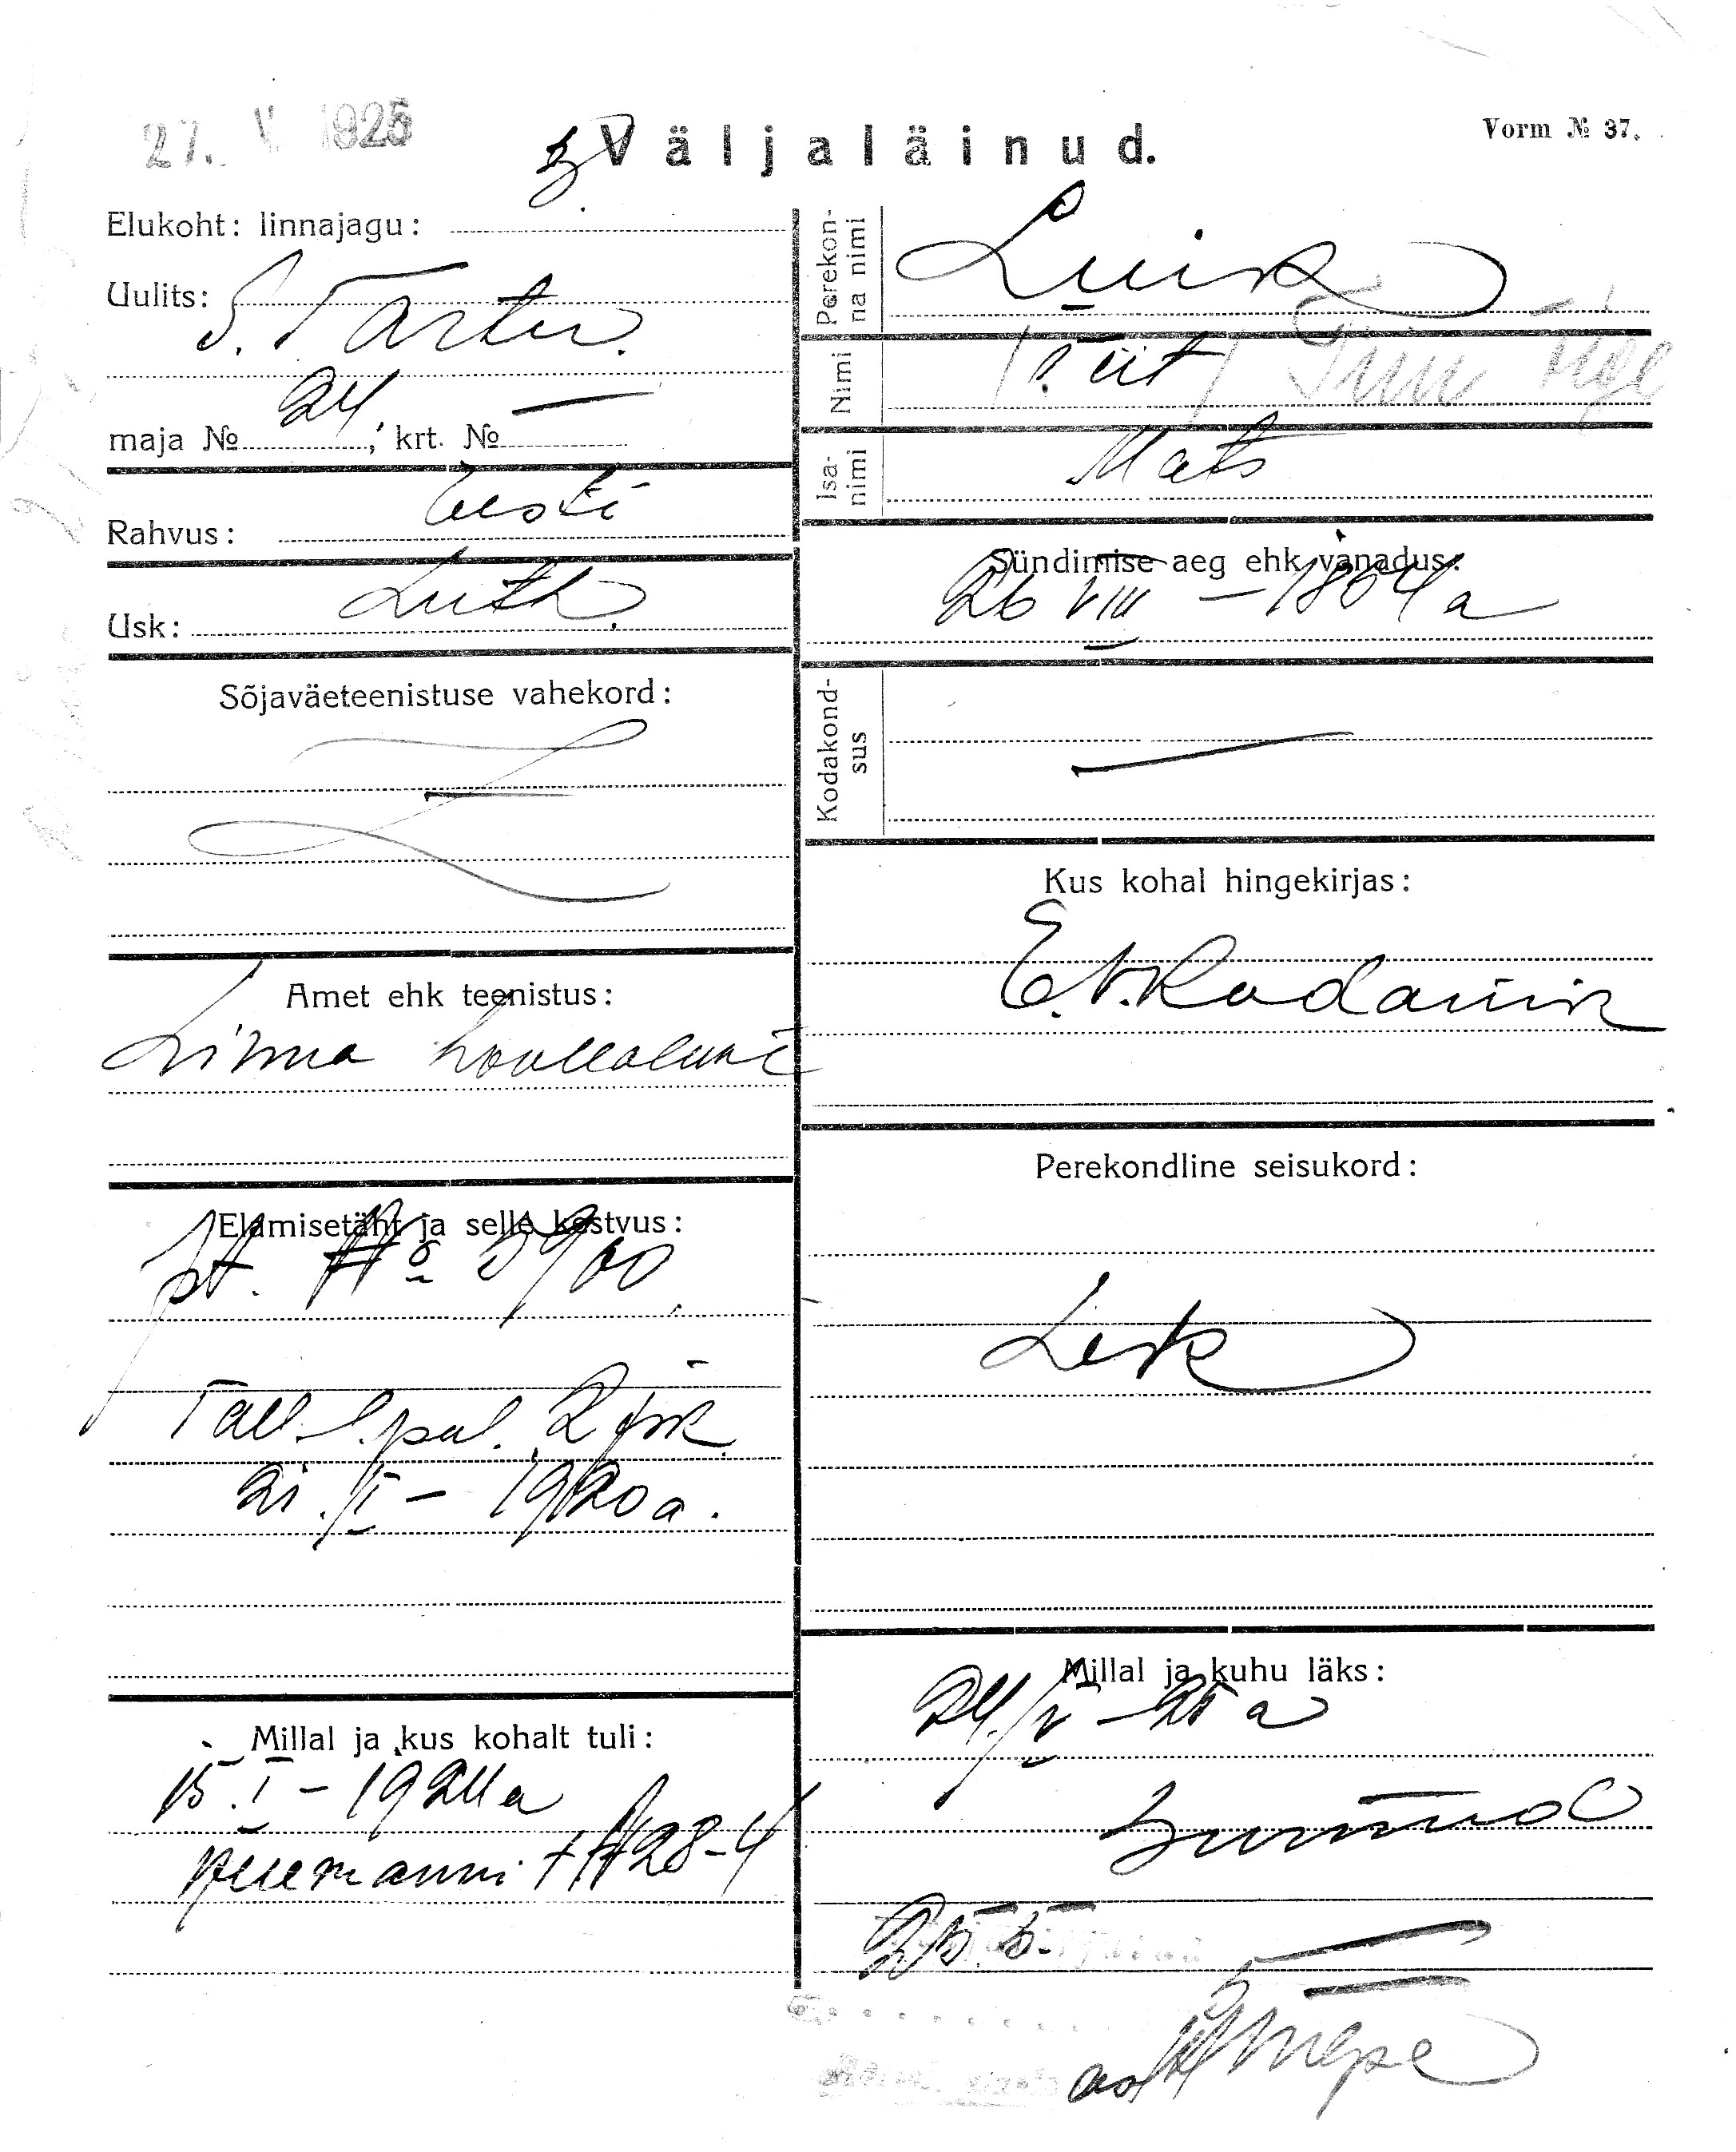 27. V 1925
Väljaläinud.
Vorm № 37.
Elukoht: linnajagu:
Uulits: S. Tartu.
maja № 24, krt. № —
Rahvus: Eesti
Usk: Luth.
Sõjaväeteenistuse vahekord:
—
Amet ehk teenistus:
Linna hoolealune
Elamisetäht ja selle kestvus:
pt. №
Tall. l. pol. 2 jsk.
21./I – 1920 a.
Millal ja kus kohalt tuli:
15. I – 1924 a
28–4
Perekonna nimi
Luik
Nimi
/Tiit/
Isanimi
Mats
Sündimise aeg ehk vanadus:
26 VIII – 1864 a
Kodakondsus
—
Kus kohal hingekirjas:
E. V. Kodanik
Perekondline seisukord:
Lesk
Millal ja kuhu läks:
24./V – 25 a
Surnud
25. 5.